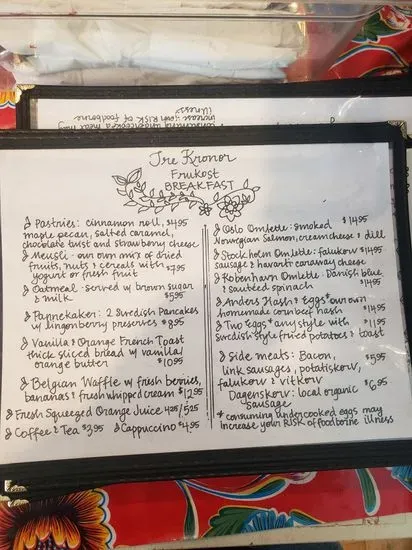 illness
increase your RISK of foodborne
consuming undercooked meat may
Tre Kronor
Frukost
BREAKFAST
Pastries: cinnamon roll, $4.95
maple pecan, salted caramel,
chocolate twist and strawberry cheese
Meusli - our own mix of dried
fruits, nuts & cereals with $7.95
yogurt or fresh fruit
Oatmeal - served w/ brown sugar
& milk $5.95
Pannekaker: 2 Swedish Pancakes
w/ lingonberry preserves $8.95
Vanilla & Orange French Toast
thick sliced bread w/ vanilla
orange butter $10.95
Belgian Waffle w/ fresh berries,
bananas & fresh whipped cream $12.95
Fresh Squeezed Orange Juice 4.25/5.25
Coffee & Tea $3.95 Cappuccino $4.95
Oslo Omlette: smoked $14.95
Norwegian Salmon, cream cheese & dill
Stockholm Omlette: falukorv $14.95
sausage & havarti caraway cheese
Kobenhavn Omlette: Danish blue
& sautéed spinach $14.95
Anders Hash & Eggs* our own
homemade corn beef hash $14.95
Two Eggs* any style with $11.95
Swedish style fried potatoes & toast
Side meats: Bacon, $5.95
link sausages, potatiskorv,
falukorv & vitkorv
Dagenskorv: local organic $6.95
sausage
* consuming undercooked eggs may
increase your RISK of foodborne illness